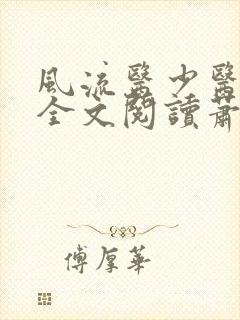 風流醫少醫
全文閱讀蕭
傅厚華